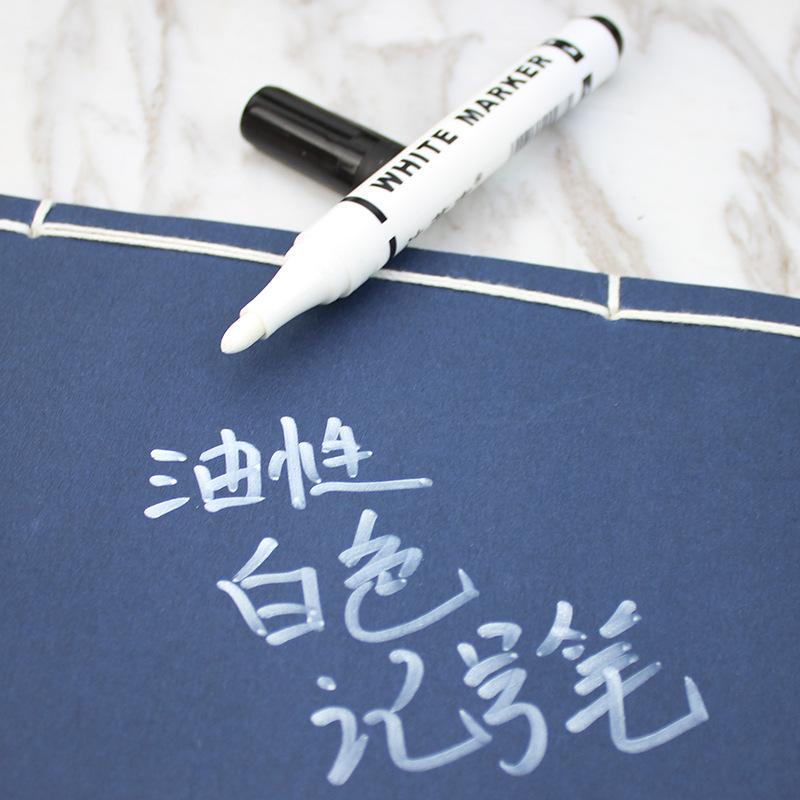 WHITE MARKER
油性
白色
记号笔